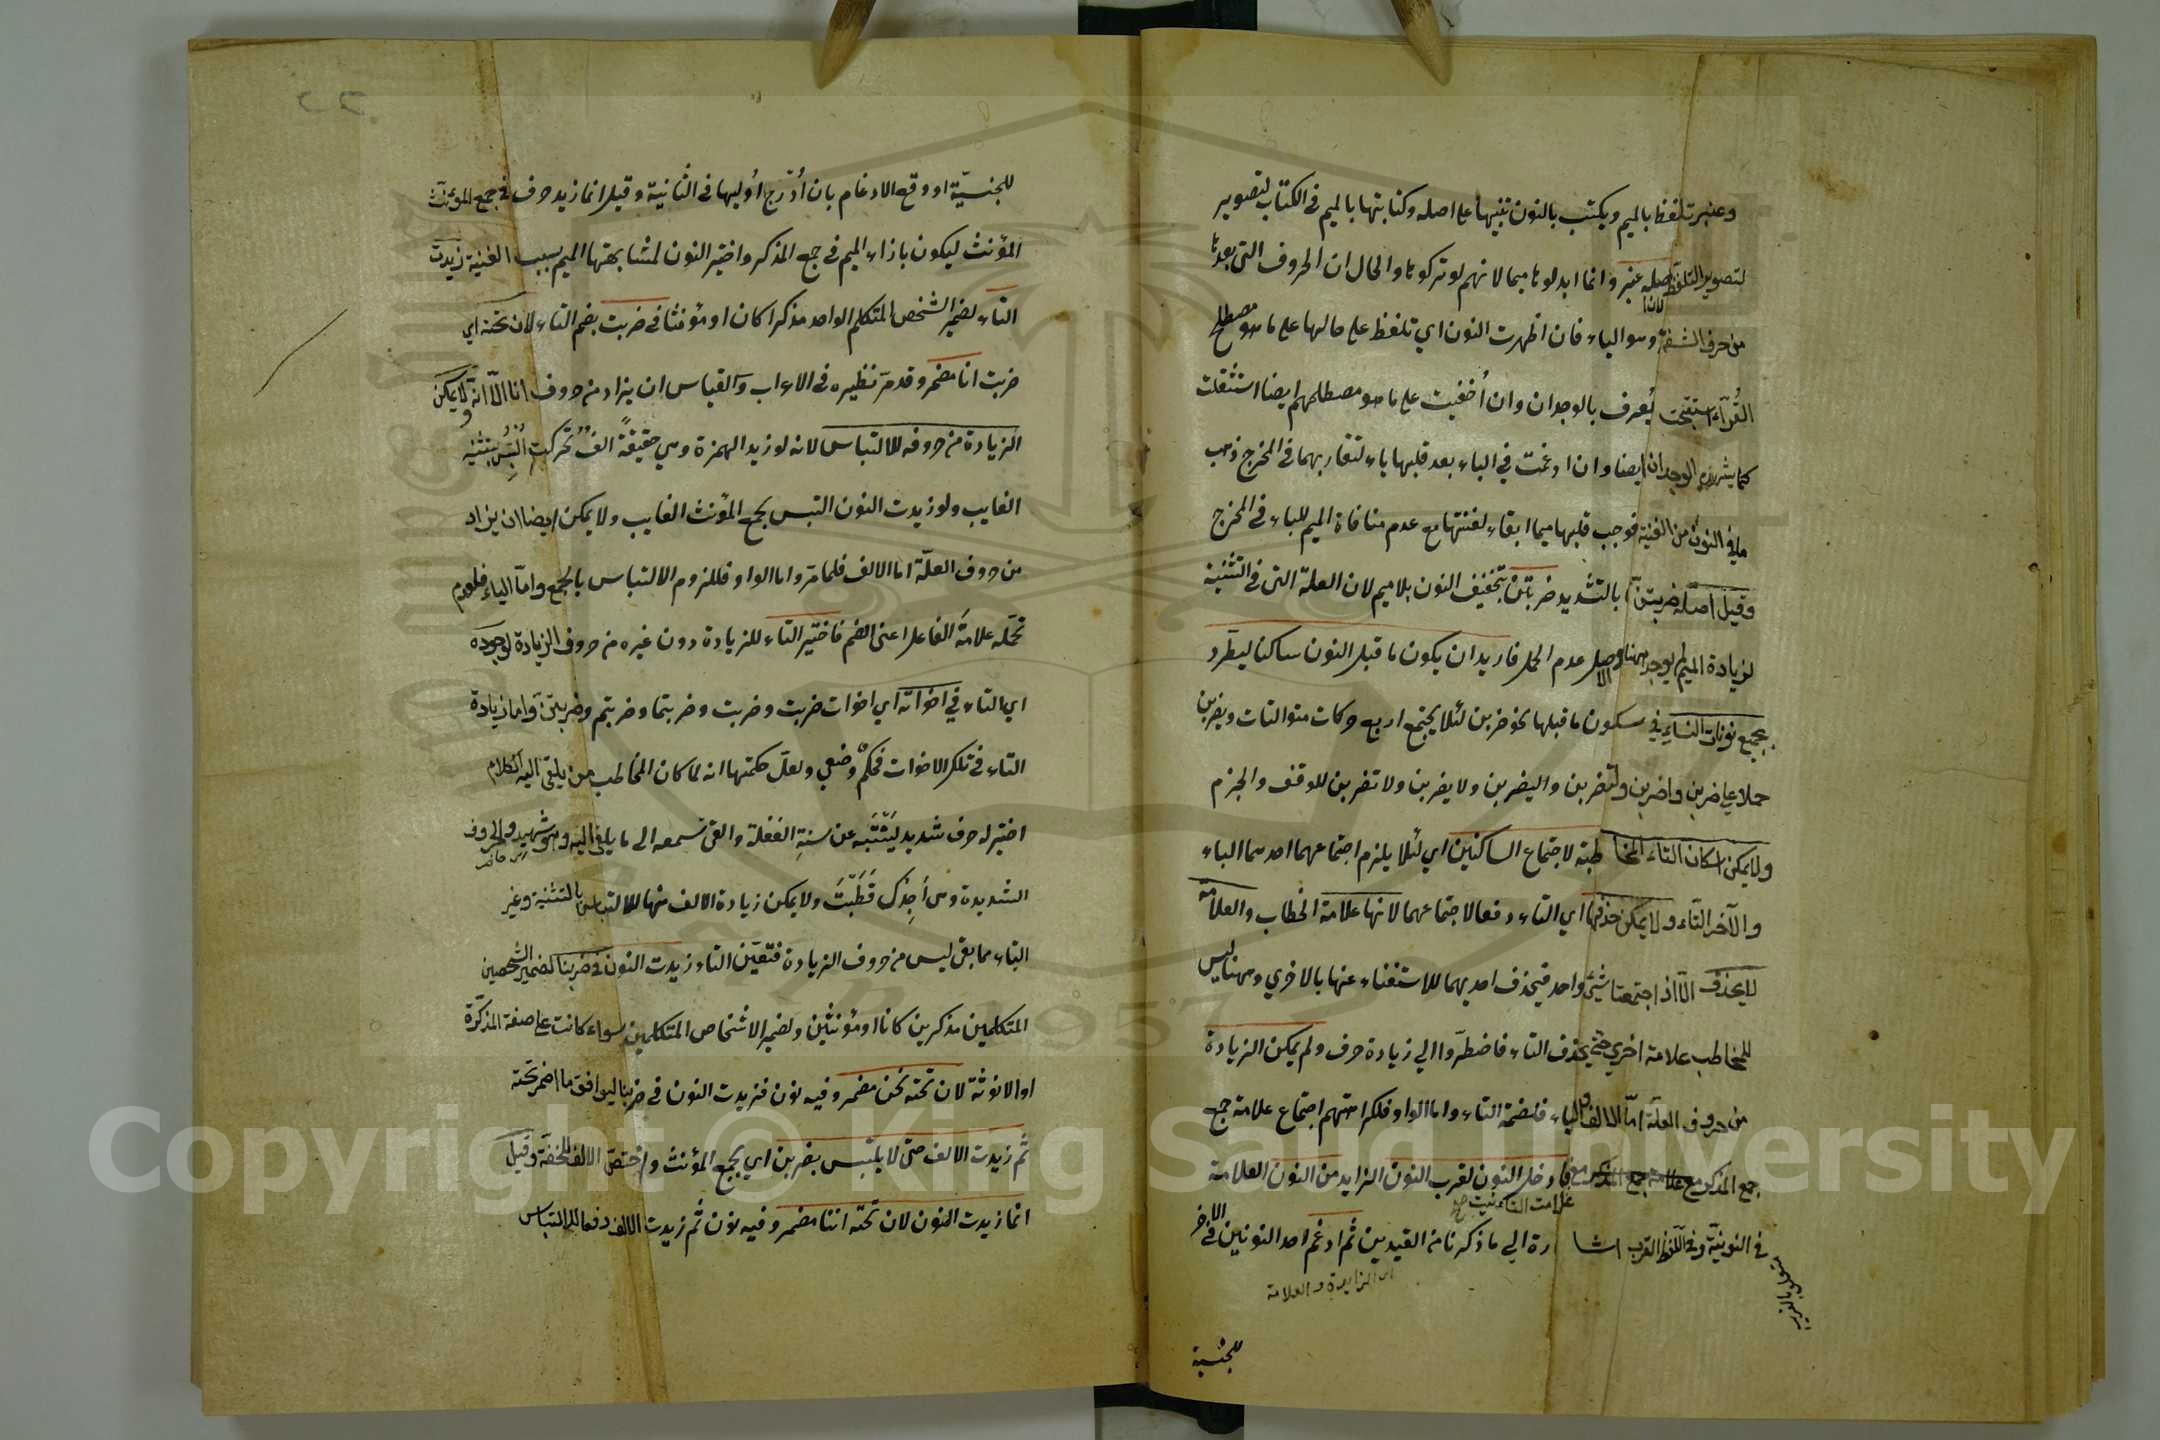 وعنبر تلفظ بالميم ويكتب بالنون تنبيها على اصله وكتابتها بالميم في الكتاب لتصوير
لتصوير التلفظ لان اصله عنبر وانما ابدلوها ميما لانهم لو تركوها والحال ان الحروف التي بعدها
من حرف الشفة وهو الباء فان اظهرت النون اي تلفظ على حالها على ما هو مصطلح
القراء استقبحت يعرف بالوجدان وان أخفيت على ما هو مصطلحهم ايضا استثقلت
كما يشهد به الوجدان ايضا وان ادغمت في الباء بعد قلبها باء لتقاربهما في المخرج ذهب
ما في النون من الغنية فوجب قلبها ميما ابقاء لغنتها مع عدم منافاة الميم للباء في المخرج
وقيل اصله ضربتنّ بالتشديد ضربتن بتخفيف النون بلا ميم لان العلة التي في التثنية
لزيادة الميم لم يوجد ههنا والاصل عدم الحمل فاريد ان يكون ما قبل النون ساكنا ليطّرد
بجميع نونات النساء في سكون ما قبلها نحو ضربن لئلا يجتمع اربع حركات متواليات ويضربن
حملا على ضربن واضربن ولتضربن واليضربن ولا يضربن ولا تضربن للوقف والجزم
ولا يمكن اسكان التاء المخاطبة لاجتماع الساكنين اي لئلا يلزم اجتماعهما احدهما الباء
والآخر التاء ولا يمكن حذفها اي التاء دفعا لاجتماعهما لانها علامة الخطاب والعلامة
لا يحذف الا اذا اجتمعتا شيئ واحد فيحذف احديهما للاستغناء عنها بالاخري وههنا ليس
للمخاطب علامة اخري حتى يحذف التاء فاضطروا الي زيادة حرف ولم يمكن الزيادة
من حروف العلة امّا الالف والياء فلضمة التاء واما الواو فلكراهتهم اجتماع علامة جمع
جمع المذكر مع علامة جمع المذكر مع فادخل النون لقرب النون الزايد من النون العلامة
علامت التأنيث صح
في النونية وفي اللفظ القرب اشارة الي ما ذكرنا من القيدين ثم ادغم احد النونين في الاخر
متعلق بالقرب
اي الزايدة والعلامة
للجنسية
للجنسيّة او وقع الادغام بان أدرج أوليها في الثانية وقيل انما زيد حرف في جمع المؤنث
المؤنث ليكون بازاء الميم في جمع المذكر واختير النون لمشابهتها الميم بسبب الغنية زيدت
التاء لضمير الشخص المتكلم الواحد مذكرا كان او مؤنثا في ضربت بضم التاء لان تحته اي
ضربت انا مضمر وقد مرّ نظيره في الاعراب والقياس ان يزاد من حروف انا الا انه لا يمكن
الزيادة من حروفه للالتباس لانه لو زيد الهمزة وهي حقيقةً الفٌ تحركت التبس بتثنيه
الغايب ولو زيدت النون التبس بجمع المؤنث الغايب ولا يمكن ايضا ان يزاد
من حروف العلّة اما الالف فلما مرّ واما الواو فللزوم الالتباس بالجمع وامّا الياء فلعدم
تحمّله علامة الفاعل اعنى الضم فاختير التاء للزيادة دون غيره من حروف الزيادة لوجوده
اي التاء في اخواته اي اخوات ضربت وضربت وضربتما وضربتم وضربتن واما زيادة
التاء في تلك الاخوات فحكمٌ وضعي ولعل حكمتها انه لما كان المخاطب من يلقى اليه الكلام
اختير له حرف شديد ليتنبّه عن سنةِ الغفلة والقى سمعه الى ما يلقى اليه وهو شهيد والحروف
اي حاضر
الشديدة وهى أجِدُكَ قَطَبْتَ ولا يمكن زيادة الالف منها للالتباس بالتثنية وغير
التاء مما بقى ليس من حروف الزيادة فتعيّن التاء زيدت النون في ضربنا لضمير الشخصين
المتكلمين مذكرين كانا او مؤنثين ولضمير الاشخاص المتكلمين سواء كانت على صنعة المذكرة
او الانوثة لان تحته نحن مضمر وفيه نون فزيدت النون في ضربنا ليوافق ما اضمر تحته
ثم زيدت الالف حتى لا يلتبس بضربن اي بجمع المؤنث واختصّ الالف للخفة وقيل
انما زيدت النون لان تحته اننا مضمر وفيه نون ثم زيدت الالف دفعا للالتباس
Copyright © King Saud University
1957